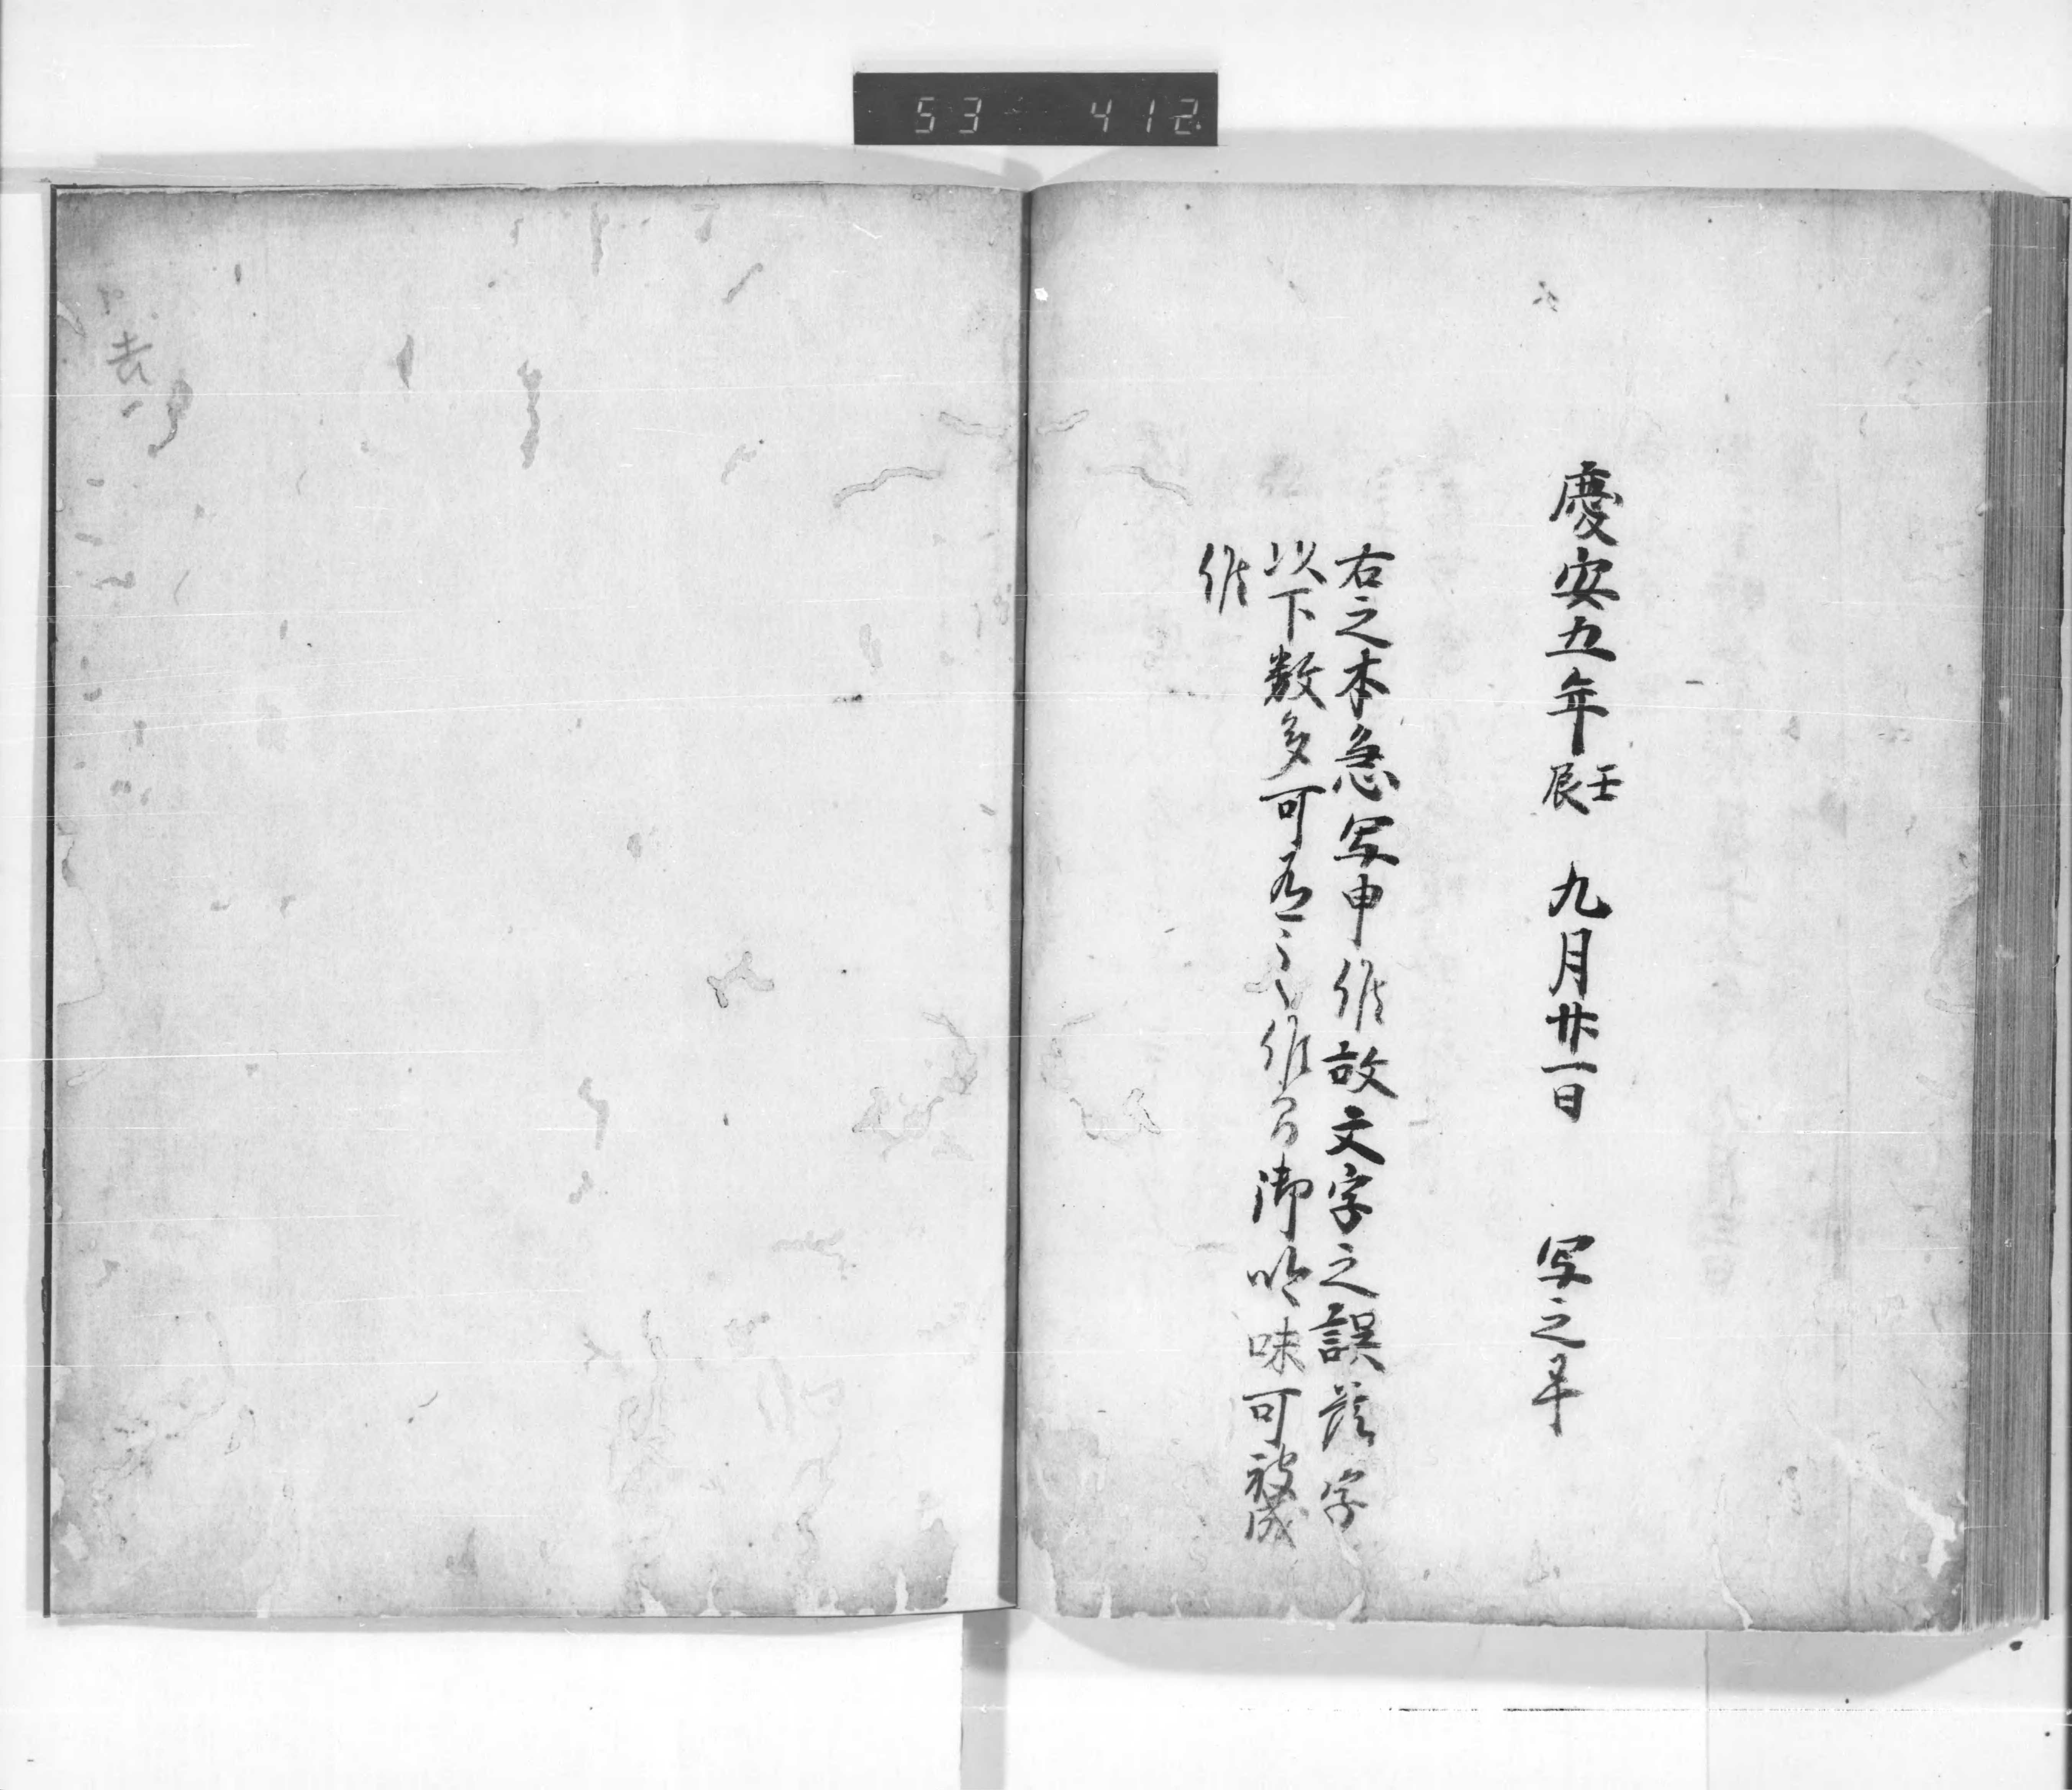 53 412
慶安五年壬辰 九月廿一日 写之畢
右之本急写申候故文字之誤落字
以下数多可有之候間御吟味可被成
候